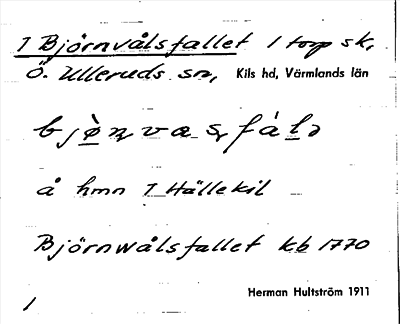 1 Björnvålsfallet 1 torp sk,
Ö. Ulleruds sn, Kils hd, Värmlands län
å hmn 1 Hällekil
Björnwålsfallet kb 1770
1
Herman Hultström 1911